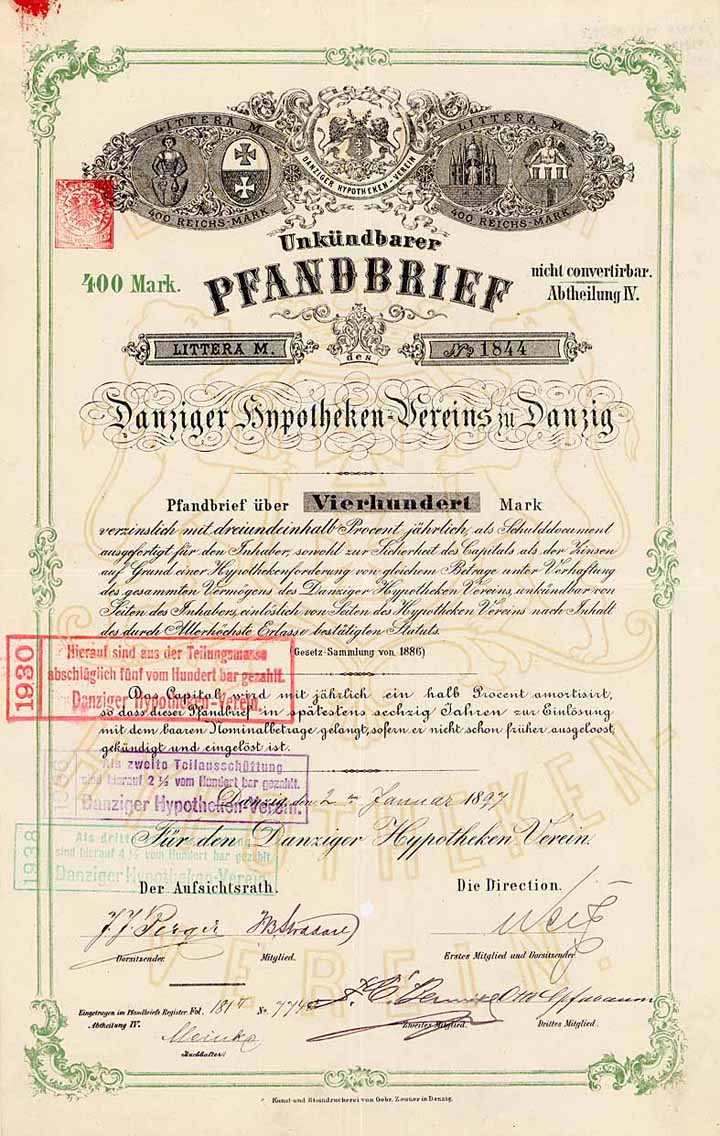 LITTERA M.
LITTERA M.
DANZIGER HYPOTHEKEN-VEREIN
400 REICHS-MARK
400 REICHS-MARK
Unkündbarer
PFANDBRIEF
400 Mark.
nicht convertirbar.
Abtheilung IV.
LITTERA M.
des
No 1844
Danziger Hypotheken-Vereins zu Danzig
Pfandbrief über Vierhundert Mark
verzinslich mit dreiundeinhalb Procent jährlich, als Schulddocument
ausgefertigt für den Inhaber, sowohl zur Sicherheit des Capitals als der Zinsen
auf Grund einer Hypothekenforderung von gleichem Betrage unter Verhaftung
des gesammten Vermögens des Danziger Hypotheken Vereins, unkündbar von
Seiten des Inhabers, einlöslich von Seiten des Hypotheken Vereins nach Inhalt
des durch Allerhöchste Erlasse bestätigten Statuts.
(Gesetz-Sammlung von 1886)
1930
Hierauf sind aus der Teilungsmasse
abschläglich fünf vom Hundert bar gezahlt.
Danziger Hypotheken-Verein.
Das Capital wird mit jährlich ein halb Procent amortisirt,
so dass dieser Pfandbrief in spätestens sechzig Jahren zur Einlösung
mit dem baaren Nominalbetrage gelangt, sofern er nicht schon früher ausgeloost,
gekündigt und eingelöst ist.
Als zweite Teilausschüttung
sind hierauf 2 ½ vom Hundert bar gezahlt.
Danziger Hypotheken-Verein.
Danzig, den 2 Januar 1897
1938
Als dritte
sind hierauf 4 ½ vom Hundert bar gezahlt.
Danziger Hypotheken-Verein.
Für den Danziger Hypotheken Verein.
Der Aufsichtsrath.
Die Direction.
Vorsitzender.
Mitglied.
Erstes Mitglied und Vorsitzender.
Zweites Mitglied.
Drittes Mitglied.
Eingetragen im Pfandbriefs Register Fol. 181 No.
Abtheilung IV.
Meinke
Buchhalter
Kunst-und Steindruckerei von Gebr. Zeuner in Danzig.
HYPOTHEKEN-
VEREIN.